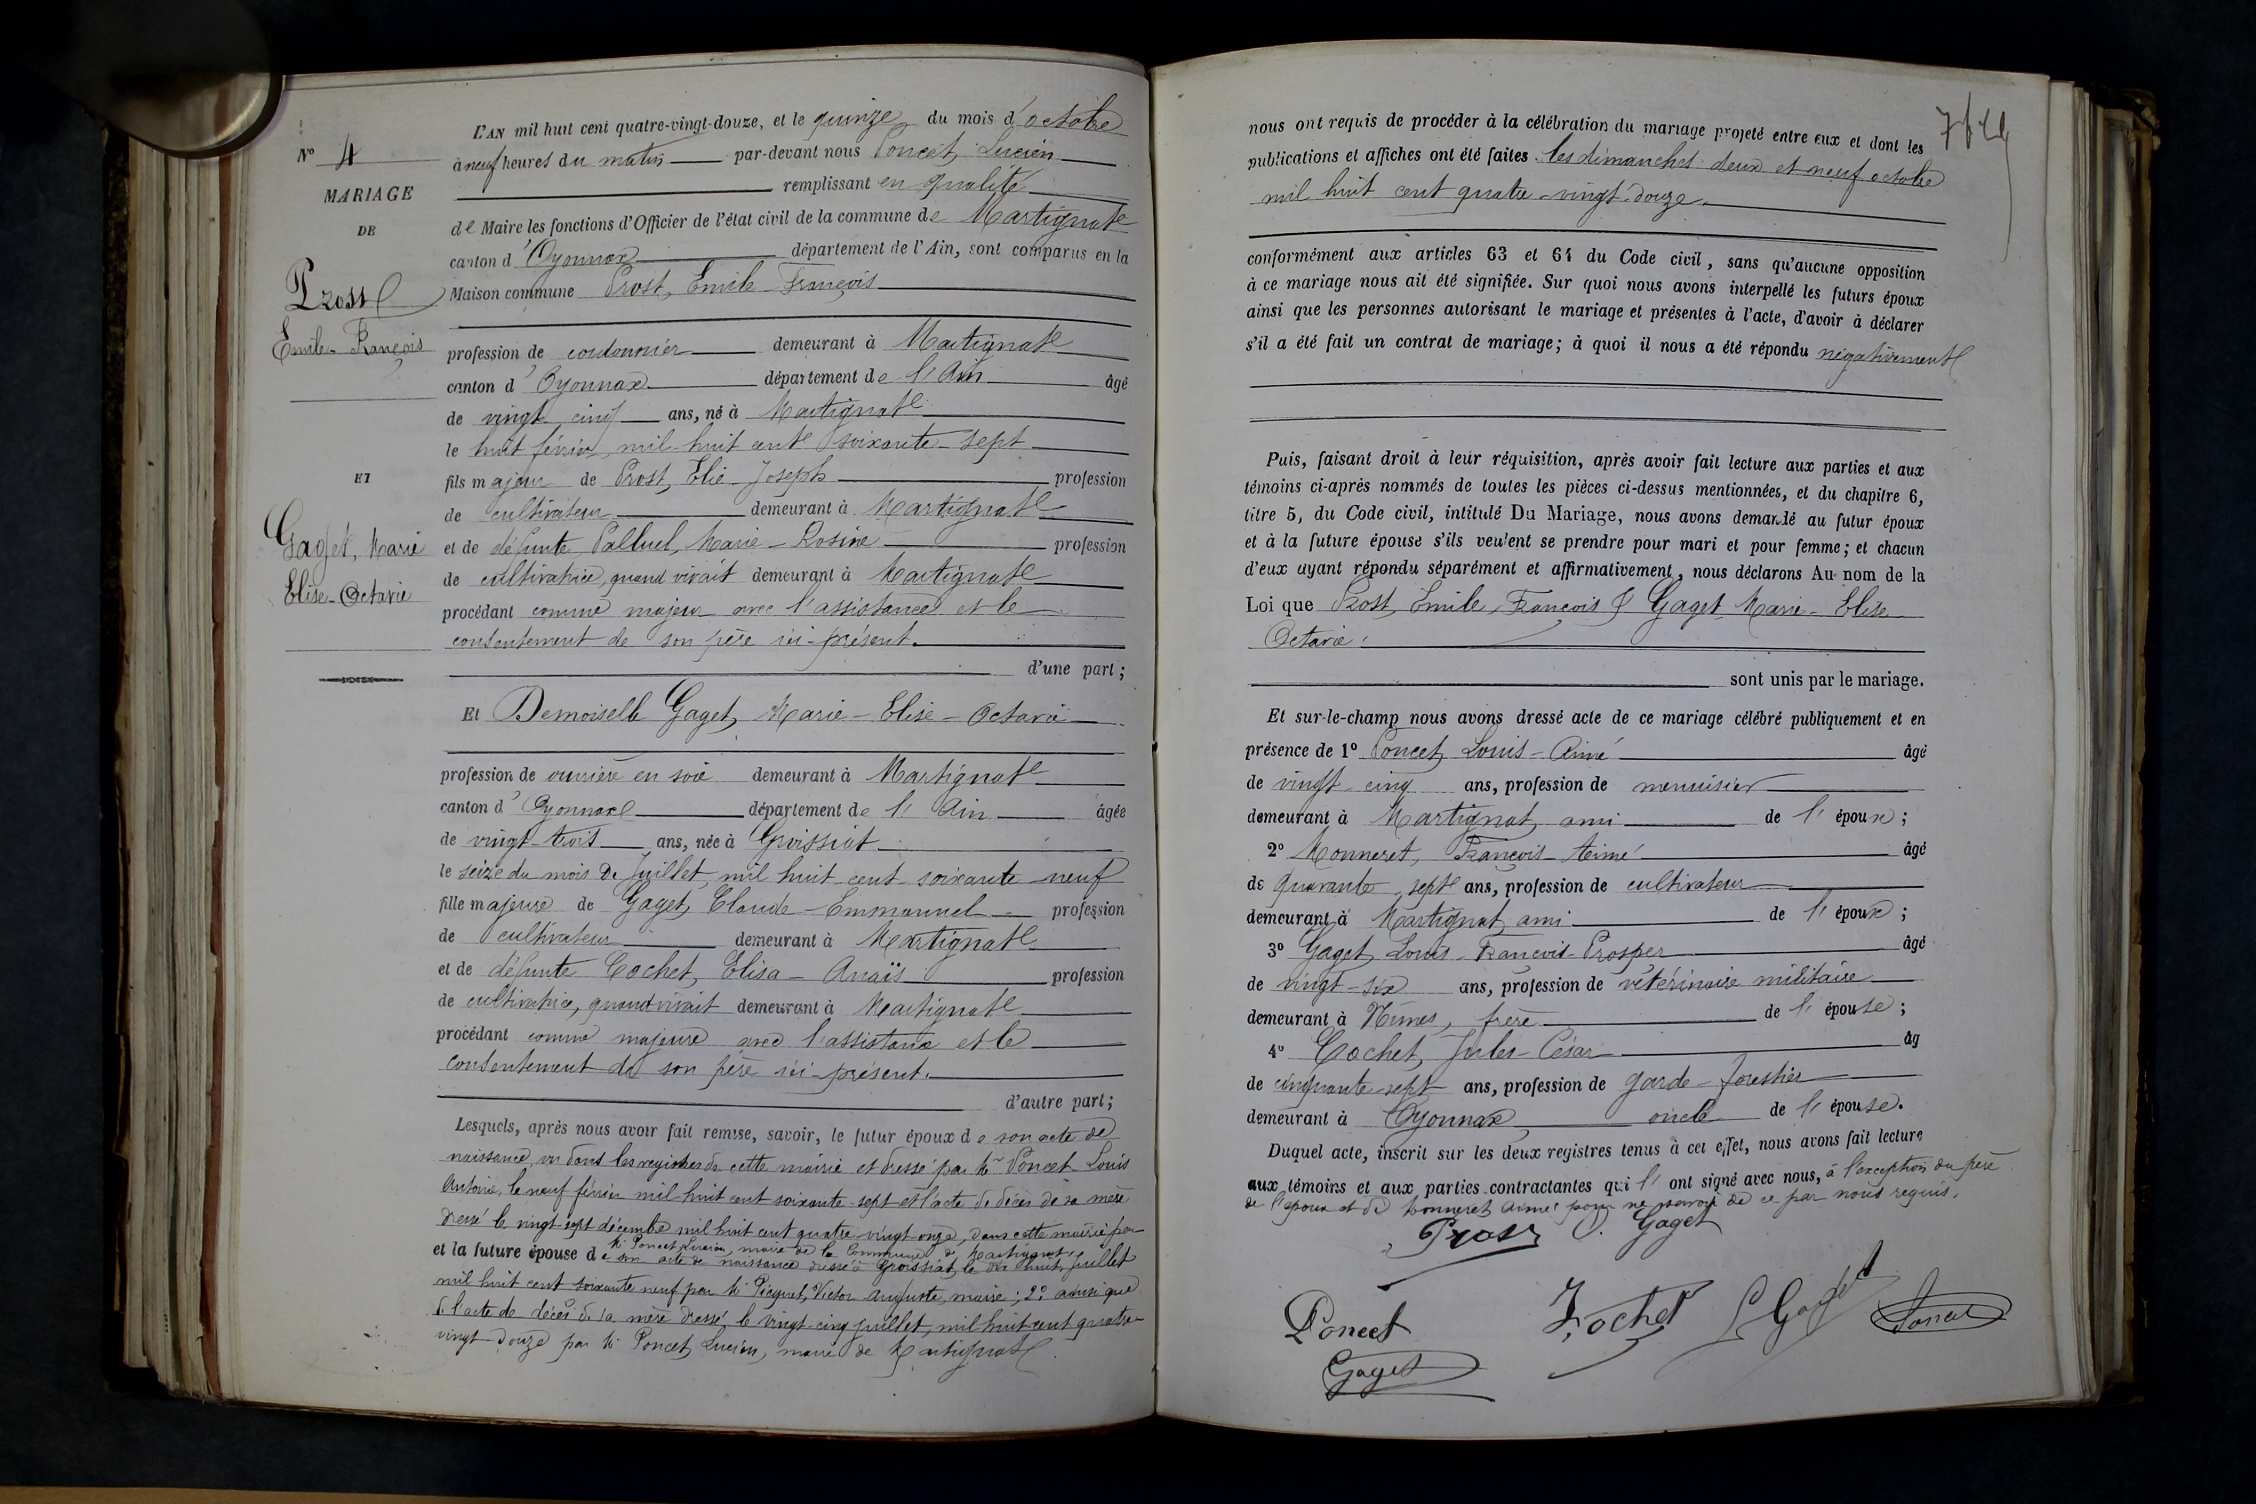 L'AN mil huit cent quatre-vingt-douze, et le quinze du mois d'octobre
N° 4
à neuf heures du matin par-devant nous Poncet, Lucien
remplissant en qualité
MARIAGE
DE
de Maire les fonctions d'Officier de l'état civil de la commune de Martignat
canton d'Oyonnax département de l'Ain, sont comparus en la
Prost
Emile-François
Maison commune Prost, Emile-François
profession de cordonnier demeurant à Martignat
canton d'Oyonnax département de l'Ain âgé
de vingt-cinq ans, né à Martignat
le huit février mil huit cent soixante-sept
ET
fils majeur de Prost, Elie-Joseph profession
de cultivateur demeurant à Martignat
Gaget, Marie
Elise-Octavie
et de défunte Palluel, Marie-Rosine profession
de cultivatrice, quand vivait demeurant à Martignat
procédant comme majeur avec l'assistance et le
consentement de son père ici-présent.
d'une part;
Et Demoiselle Gaget, Marie-Elise-Octavie
profession de ouvrière en soie demeurant à Martignat
canton d'Oyonnax département de l'Ain âgée
de vingt-trois ans, née à Groissiat
le seize du mois de Juillet, mil huit cent soixante-neuf
fille majeure de Gaget, Claude-Emmanuel profession
de cultivateur demeurant à Martignat
et de défunte Cochet, Elisa-Anaïs profession
de cultivatrice, quand vivait demeurant à Martignat
procédant comme majeure avec l'assistance et le
consentement de son père ici-présent.
d'autre part;
Lesquels, après nous avoir fait remise, savoir, le futur époux de son acte de
naissance, vu dans les registres de cette mairie et dressé par Mr Poncet Louis
Antoine, le neuf février mil huit cent soixante-sept et l'acte de décès de sa mère
dressé le vingt-sept décembre mil huit cent quatre-vingt-onze, dans cette mairie par
Mr Poncet, Lucien, maire de la Commune de Martignat,
et la future épouse de son acte de naissance dressé à Groissiat, le dix-huit juillet
mil huit cent soixante neuf par Mr Victor Auguste, maire; 2° ainsi que
de l'acte de décès de sa mère dressé le vingt-cinq juillet, mil huit cent quatre-
vingt-douze par Mr Poncet, Lucien, maire de Martignat.
nous ont requis de procéder à la célébration du mariage projeté entre eux et dont les
publications et affiches ont été faites les dimanches deux et neuf octobre
mil huit cent quatre-vingt-douze.
conformément aux articles 63 et 64 du Code civil, sans qu'aucune opposition
à ce mariage nous ait été signifiée. Sur quoi nous avons interpellé les futurs époux
ainsi que les personnes autorisant le mariage et présentes à l'acte, d'avoir à déclarer
s'il a été fait un contrat de mariage; à quoi il nous a été répondu négativement
Puis, faisant droit à leur réquisition, après avoir fait lecture aux parties et aux
témoins ci-après nommés de toutes les pièces ci-dessus mentionnées, et du chapitre 6,
titre 5, du Code civil, intitulé Du Mariage, nous avons demandé au futur époux
et à la future épouse s'ils veulent se prendre pour mari et pour femme; et chacun
d'eux ayant répondu séparément et affirmativement, nous déclarons Au nom de la
Loi que Prost, Emile, François & Gaget Marie-Elise
Octavie.
sont unis par le mariage.
Et sur-le-champ nous avons dressé acte de ce mariage célébré publiquement et en
présence de 1° Poncet, Louis-Aimé âgé
de vingt-cinq ans, profession de menuisier
demeurant à Martignat, ami de l'époux;
2° Monneret, François-Aimé âgé
de quarante-sept ans, profession de cultivateur
demeurant à Martignat, ami de l'époux;
3° Gaget, Louis-François-Prosper âgé
de vingt-six ans, profession de vétérinaire militaire
demeurant à Nîmes, frère de l'épouse;
4° Cochet, Jules-César âg
de cinquante-sept ans, profession de garde-forestier
demeurant à Oyonnax oncle de l'épouse.
Duquel acte, inscrit sur les deux registres tenus à cet effet, nous avons fait lecture
aux témoins et aux parties contractantes qui l'ont signé avec nous, à l'exception du père
de l'époux et de Monneret Aimé pour ne savoir de ce par nous requis.
Prost O. Gaget
Poncet Cochet L Gaget Poncet
Gaget